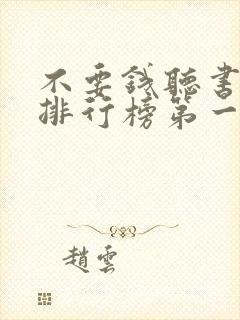 不要钱聽書
排行榜第一
趙雲